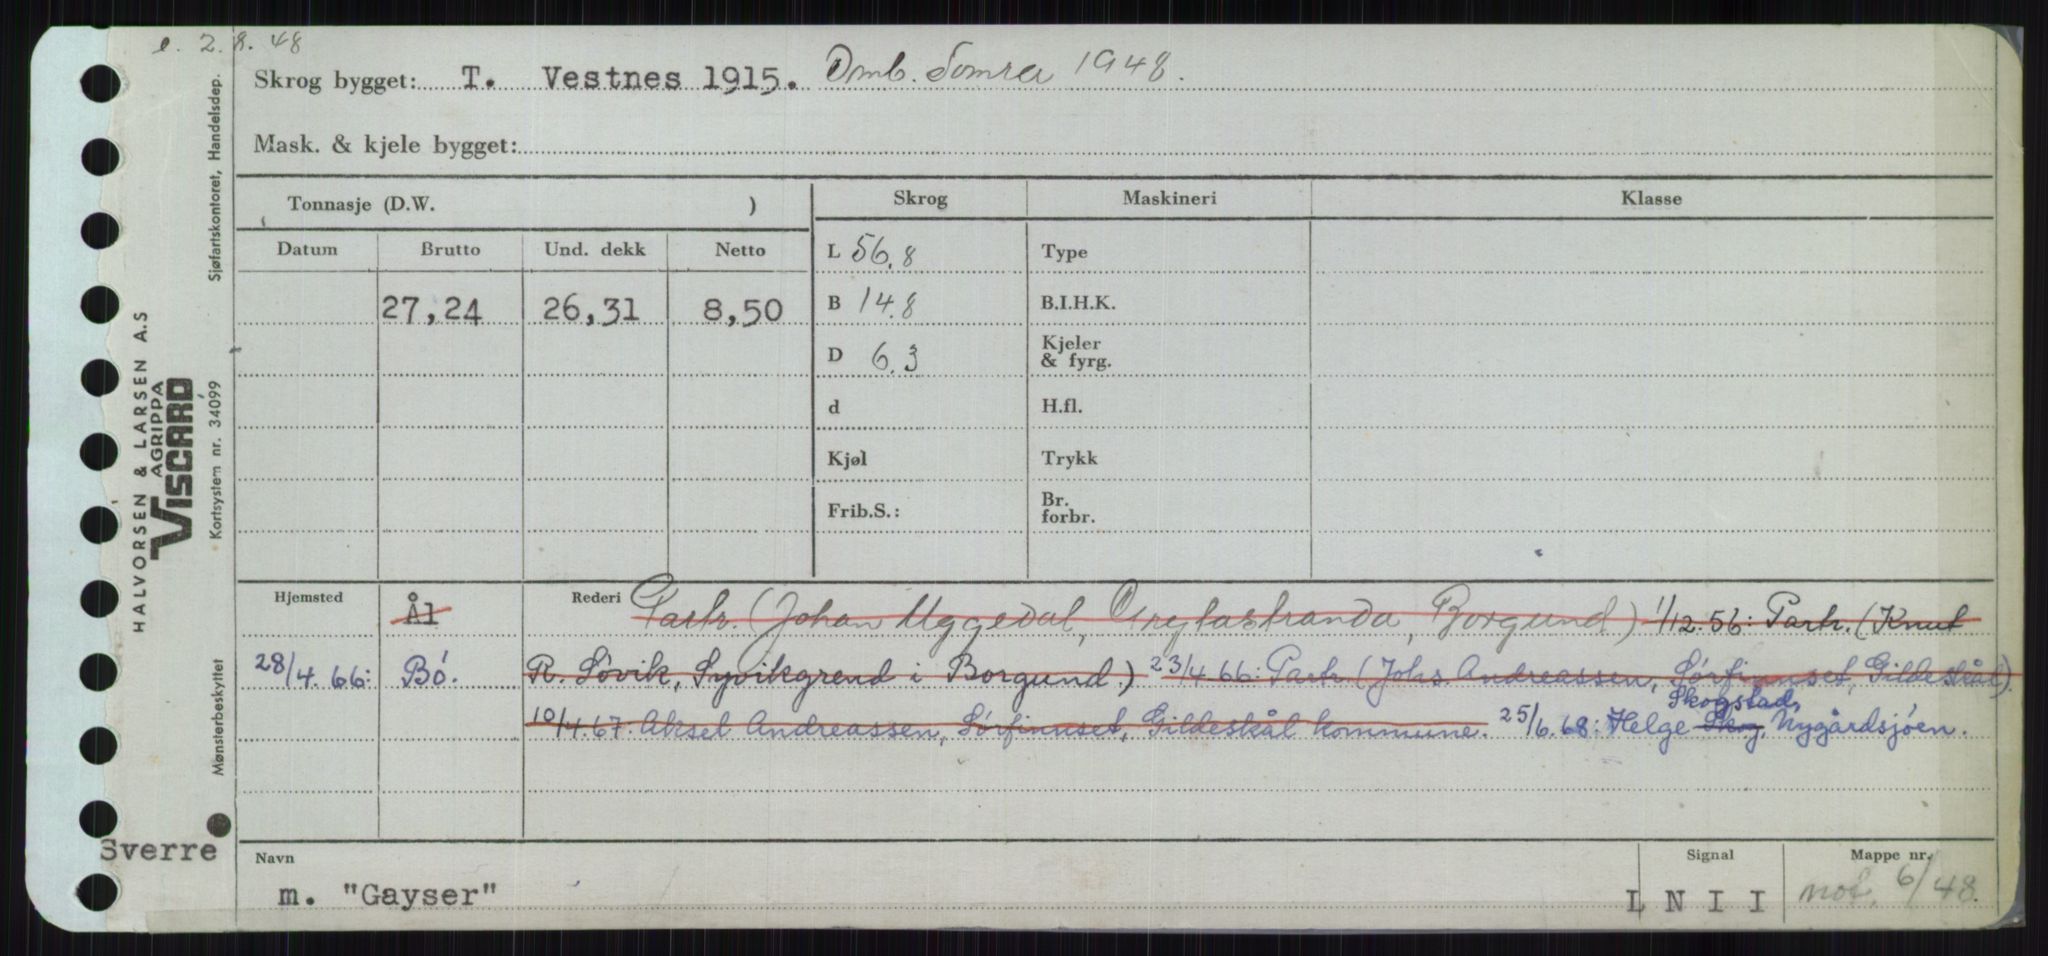 e. 2. 8. 48
Skrog bygget: T. Vestnes 1915. Omb. Tomra 1948.
Mask. & kjele bygget:
Tonnasje (D.W. )
Skrog Maskineri Klasse
Datum Brutto Und. dekk Netto
L 56,8 Type
27,24 26,31 8,50
B 14.8 B.I.H.K.
D 6.3 Kjeler & fyrg.
d H.fl.
Kjøl Trykk
Frib.S.: Br. forbr.
Hjemsted Ål Rederi Partr. (Johan Uggedal, Gregtastranda, Borgund) 1/12.56: Partr. (Knut
28/4.66: Bö. R. Sövik, Syvikgrend i Borgund.) 23/4 66: Partr. (Johs. Andreassen, Sørfinnset, Gildeskål).
Skogstad,
10/4.67: Aksel Andreassen, Sørfinnset, Gildeskål kommune. 25/6.68: Helge Skog, Nygårdsjöen.
Sverre
Navn Signal Mappe nr.
m. "Gayser" L N I I not. 6/48.
HALVORSEN & LARSEN A.S
AGRIPPA
VISCARD
Mønsterbeskyttet Kortsystem nr. 34099 Sjøfartskontoret, Handelsdep.